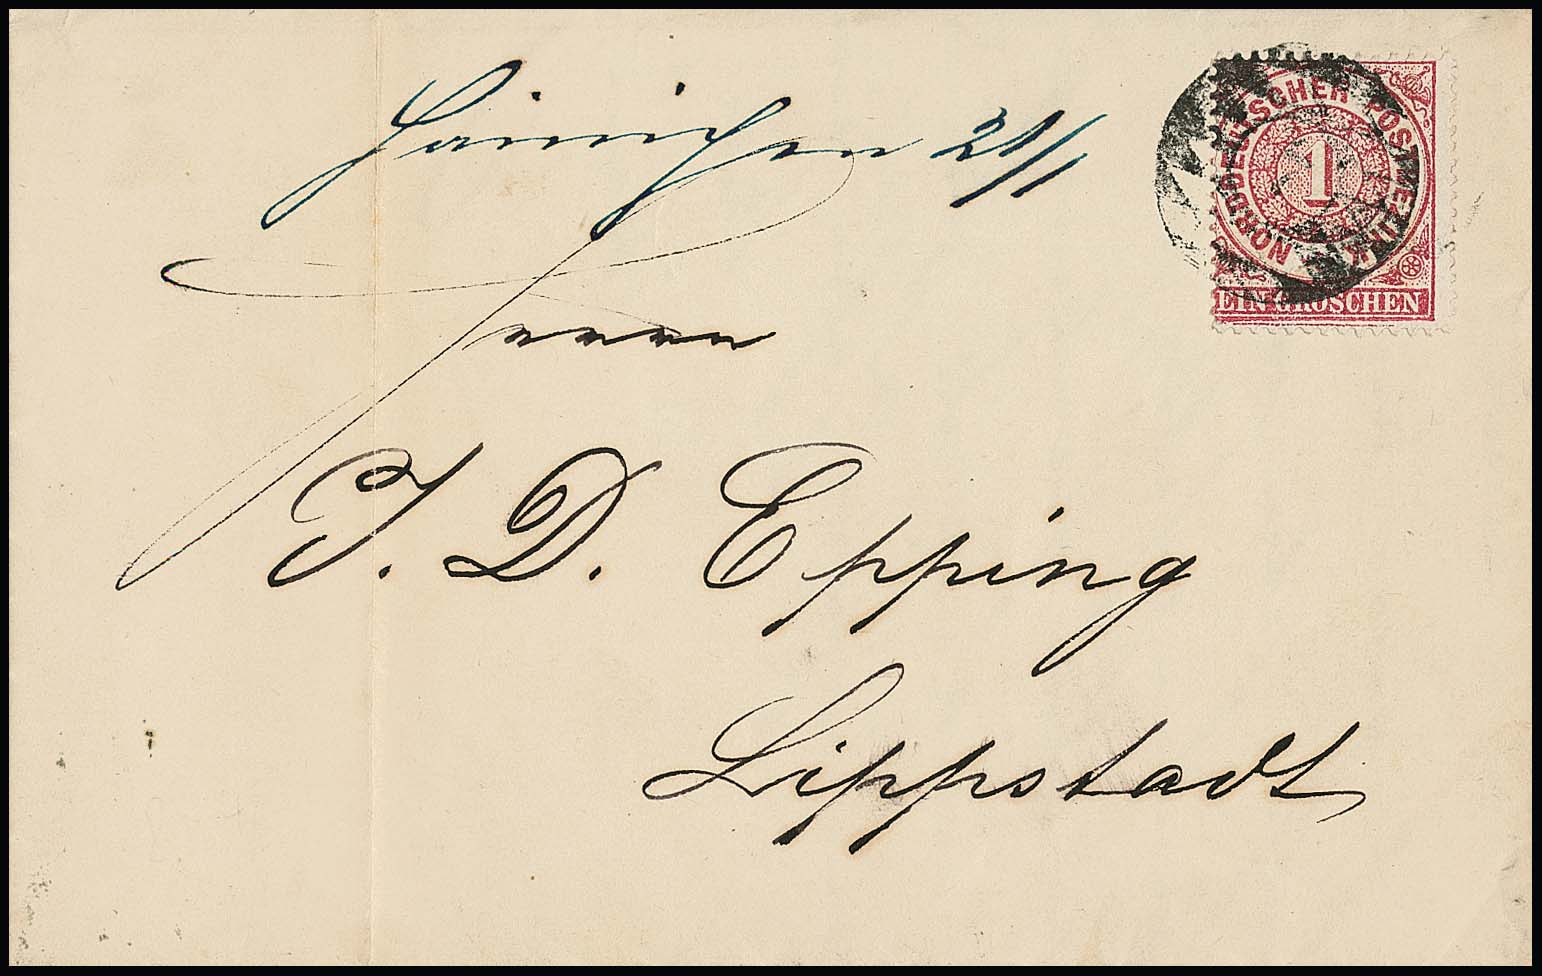 Hainichen 21/1
NORDDEUTSCHER POSTBEZIRK
1
EIN GROSCHEN
Herrn
J. D. Epping
Lippstadt